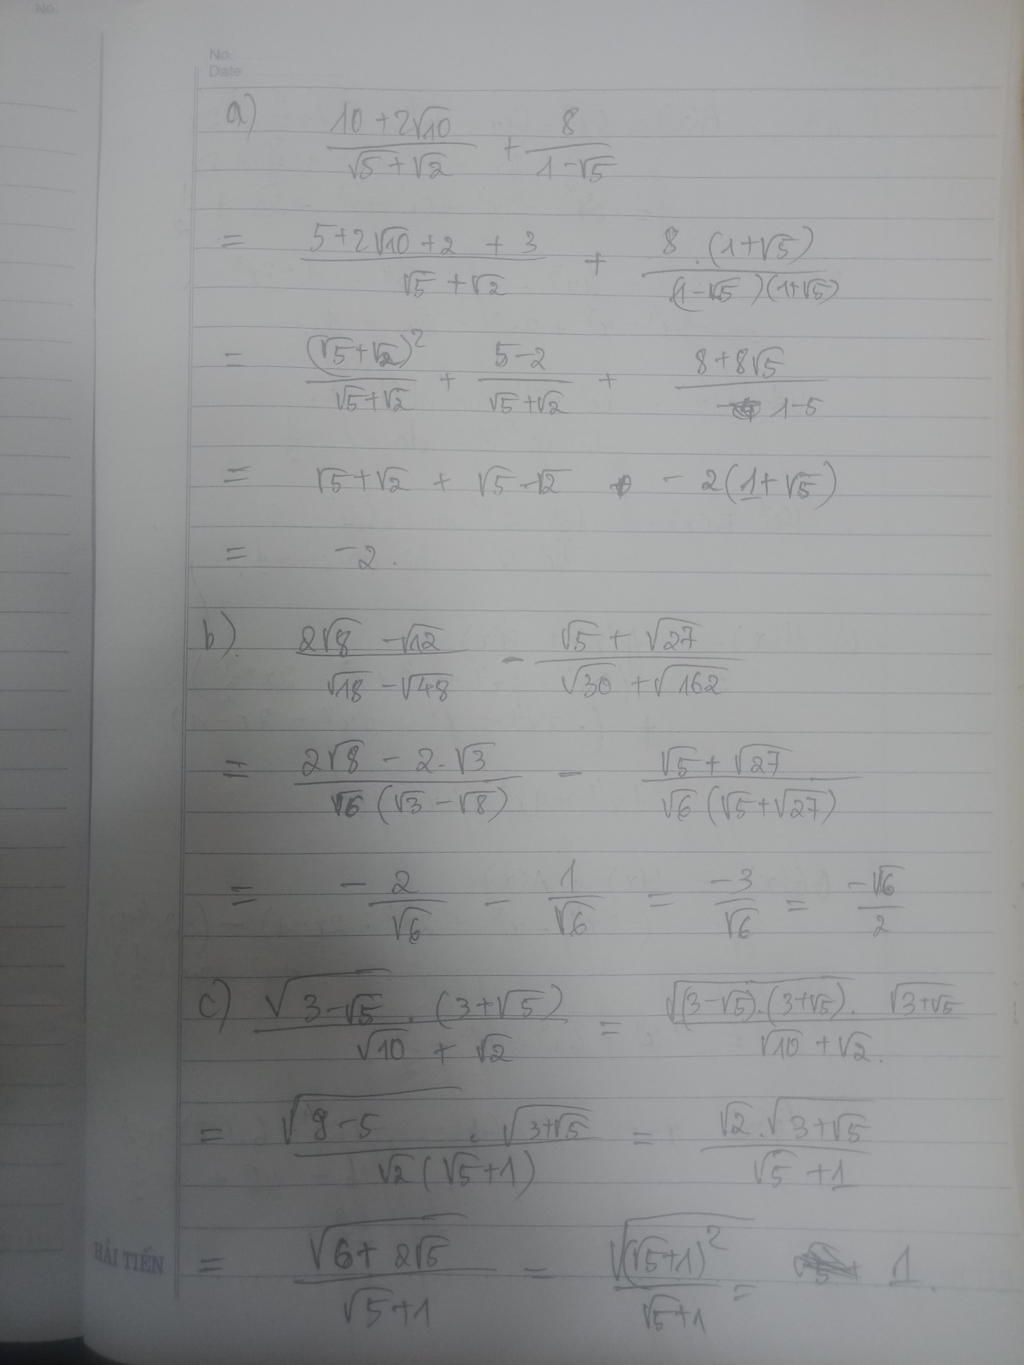 No.
No.
Date
a) (10 + 2√10)/(√5 + √2) + 8/(1 - √5)
= (5 + 2√10 + 2 + 3)/(√5 + √2) + (8 . (1 + √5))/((1 - √5)(1 + √5))
= (√5 + √2)²/(√5 + √2) + (5 - 2)/(√5 + √2) + (8 + 8√5)/(1 - 5)
= √5 + √2 + √5 - √2 - 2(1 + √5)
= -2.
b). (2√8 - √12)/(√18 - √48) - (√5 + √27)/(√30 + √162)
= (2√8 - 2.√3)/(√6(√3 - √8)) - (√5 + √27)/(√6(√5 + √27))
= -2/√6 - 1/√6 = -3/√6 = -√6/2
c) (√(3 - √5) . (3 + √5))/(√10 + √2) = (√((3 - √5).(3 + √5)) . √(3 + √5))/(√10 + √2).
= (√(9 - 5) . √(3 + √5))/(√2(√5 + 1)) = (√2.√(3 + √5))/(√5 + 1)
= √(6 + 2√5)/(√5 + 1) = √((√5 + 1)²)/(√5 + 1) = 1.
HẢI TIẾN